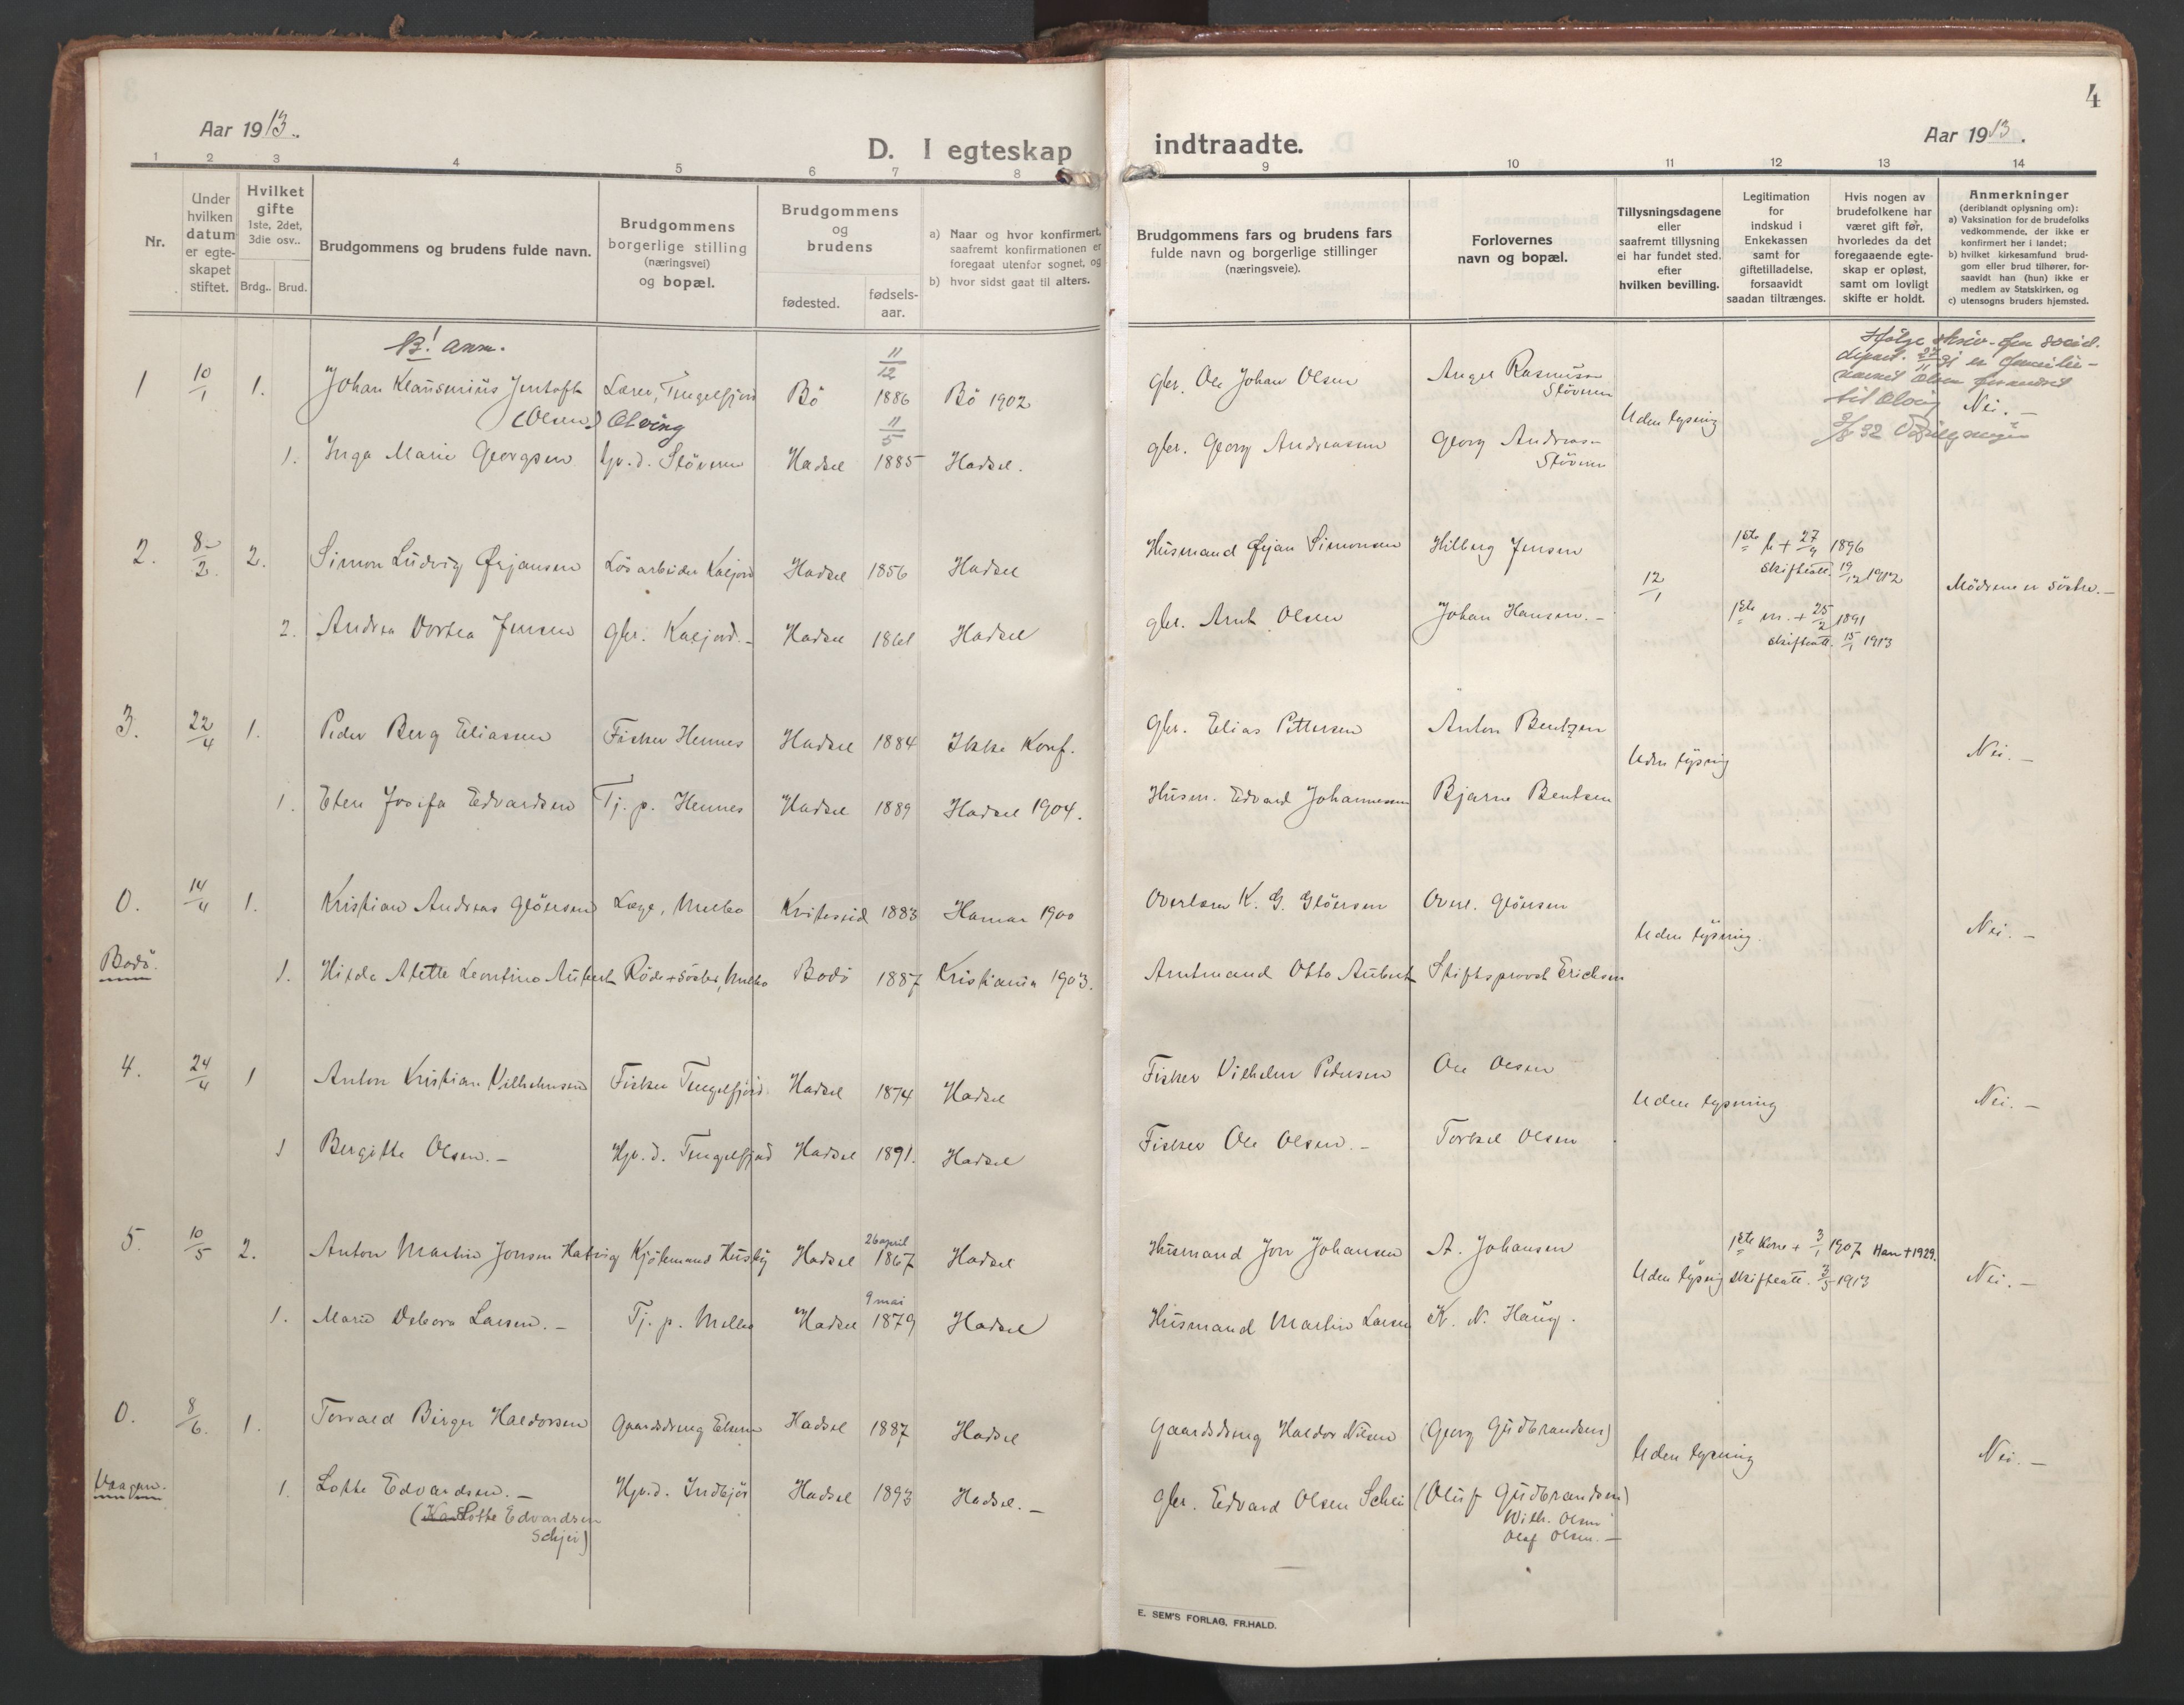 4
Aar 1913.
D. I egteskap indtraadte.
Aar 1913.
1 2 3 4 5 6 7 8 9 10 11 12 13 14
Nr.
Under hvilken datum er egteskapet stiftet.
Hvilket gifte 1ste, 2det, 3die osv..
Brdg.. Brud.
Brudgommens og brudens fulde navn.
Brudgommens borgerlige stilling (næringsvei) og bopæl.
Brudgommens og brudens
fødested. fødsels-aar.
a) Naar og hvor konfirmert, saafremt konfirmationen er foregaat utenfor sognet, og
b) hvor sidst gaat til alters.
Brudgommens fars og brudens fars fulde navn og borgerlige stillinger (næringsveie).
Forlovernes navn og bopæl.
Tillysningsdagene eller saafremt tillysning ei har fundet sted. efter hvilken bevilling.
Legitimation for indskud i Enkekassen samt for giftetilladelse, forsaavidt saadan tiltrænges.
Hvis nogen av brudefolkene har været gift før, hvorledes da det foregaaende egteskap er opløst, samt om lovligt skifte er holdt.
Anmerkninger (deriblandt oplysning om):
a) Vaksination for de brudefolks vedkommende, der ikke er konfirmert her i landet;
b) hvilket kirkesamfund brudgom eller brud tilhører, forsaavidt han (hun) ikke er medlem av Statskirken, og
c) utensogns bruders hjemsted.
B! anm.
1 10/1 1. Johan Klausenius Jentoft (Olsen) Olving Lærer, Tengelfjord Bö 11/12 1886 Bö 1902 gbr. Ole Johan Olsen Angel Rasmussen Stövern
Uden lysning
Ifølge skriv. fra social
depart. 27/11 31 er familie-
navnet Olsen forandret
til Olving Nei. -
1. Inga Marie Georgsen hjv. d. Stövern Hadsel 11/5 1885 Hadsel. gbr. Georg Andreassen Georg Andreas- Stövern
2. 8/2 2. Simon Ludvig Örjansen Lösarbeider Kaljord Hadsel 1856 Hadsel Husmand Örjan Simonsen Hilberg Jensen
12/1
1ste h + 27/4 1896
skifteatt. 19/12 1912
Mödrene er söstre. -
2. Andrea Dortea Jensen gbr. Kaljord. - Hadsel 1861 Hadsel gbr. Arnt Olsen Johan Hansen. -
1ste m. + 25/2 1891
skifteatt. 15/1 1913
3. 22/4 1. Peder Berg Eliassen Fisker Hennes Hadsel 1884 Ikke Konf. gbr. Elias Pettersen Anton Bentzen
Uden lysning Nei. -
1. Elen Josifa Edvardsen Tj. p. Hennes Hadsel 1889 Hadsel 1904. Husm. Edvard Johannessen Bjarne Bentsen
0. 14/4 1. Kristian Andreas Glöersen Læge, Melbo Kviteseid 1883 Hamar 1900 Overlærer K. G. Glöersen Overl. Glöersen
Uden lysning Nei. -
Bodö. 1. Hilda Alette Leontine Aubert Röde+söster, Melbo Bodö 1887 Kristiania 1903. Amtmand Otto Aubert Stiftsprovst Erichsen
4. 24/4 1 Anton Kristian Vilhelmsen Fisker Tengelfjord Hadsel 1874 Hadsel Fisker Vilhelm Pedersen Ole Olsen
Uden lysning Nei. -
1 Bergitte Olsen. - Hjv. d. Tengelfjord Hadsel 1891. Hadsel Fisker Ole Olsen. - Torkel Olsen
5. 10/5 2. Anton Martin Jonsen Hatvig Kjötmand Husby Hadsel 26 april 1867 Hadsel Husmand Jon Johansen A. Johansen
Uden lysning
1ste Kone + 3/1 1907 Han + 1929.
skifteatt. 3/5 1913 Nei. -
1. Marie Debora Larsen. - Tj. p. Melbo Hadsel 9 mai 1879 Hadsel Husmand Martin Larsen K. N. Haug.
0. 8/6. 1. Torvald Birger Haldorsen Gaardsdreng Hadsel 1887 Hadsel Gaardsdreng Haldor Nilsen (Georg Gudbrandsen)
Uden lysning Nei. -
Vaagan. 1. Lotte Edvardsen. - Hjv. d. Indbjör Hadsel 1893 Hadsel. - gbr. Edvard Olsen Schei (Oluf Gudbrandsen)
(Lotte Edvardsen
Schjei)
Wilh. Olsen
Olaf Olsen. -
E. SEM'S FORLAG, FR.HALD.